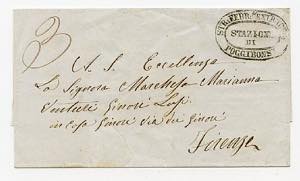 3
STAZIONE
DI
POGGIBONSI
A S. E. Eccellenza
La Signora Marchesa Marianna
Venturi Ginori Lisci
in Casa Ginori Via de Ginori
Firenze